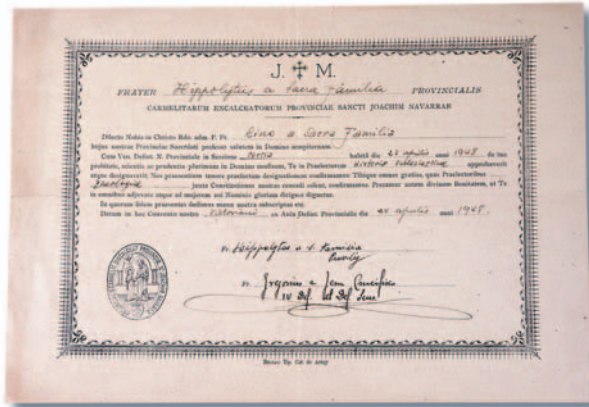 J. ✝ M.
FRATER Hippolytus a Sacra Familia PROVINCIALIS
CARMELITARUM EXCALCEATORUM PROVINCIAE SANCTI JOACHIM NAVARRAE
Dilecto Nobis in Christo Rdo. adm. P. Fr. Eino a Sacra Familia
hujus nostrae Provinciae Sacerdoti professo salutem in Domino sempiternam.
Cum Ven. Definit. N. Provinciale in Sessione tertia habitâ die 24 aprilis anni 1948 de tua
probitate, scientia ac prudentia plurimum in Domino confisum, Te in Praelectorem Historiae Ecclesiasticae approbaverit
atque designaverit; Nos praesentium tenore praefatam designationem confirmamus Tibique omnes gratias, quas Praelectoribus
Theologiae juxta Constitutiones nostras concedi solent, confirmamus. Precamur autem divinam Bonitatem, ut Te
in omnibus adjuvare atque ad majorem sui Nominis gloriam dirigere dignetur.
In quorum fidem praesentes dedimus manu nostra subscriptas etc.
Datum in hoc Conventu nostro Victoriensi ex Aula Definit. Provincialis die 24 aprilis anni 1948.
Fr. Hippolytus a S. Familia
Fr. Gregorius a Jesu Crucifixo
IV Def. et Def. Secus